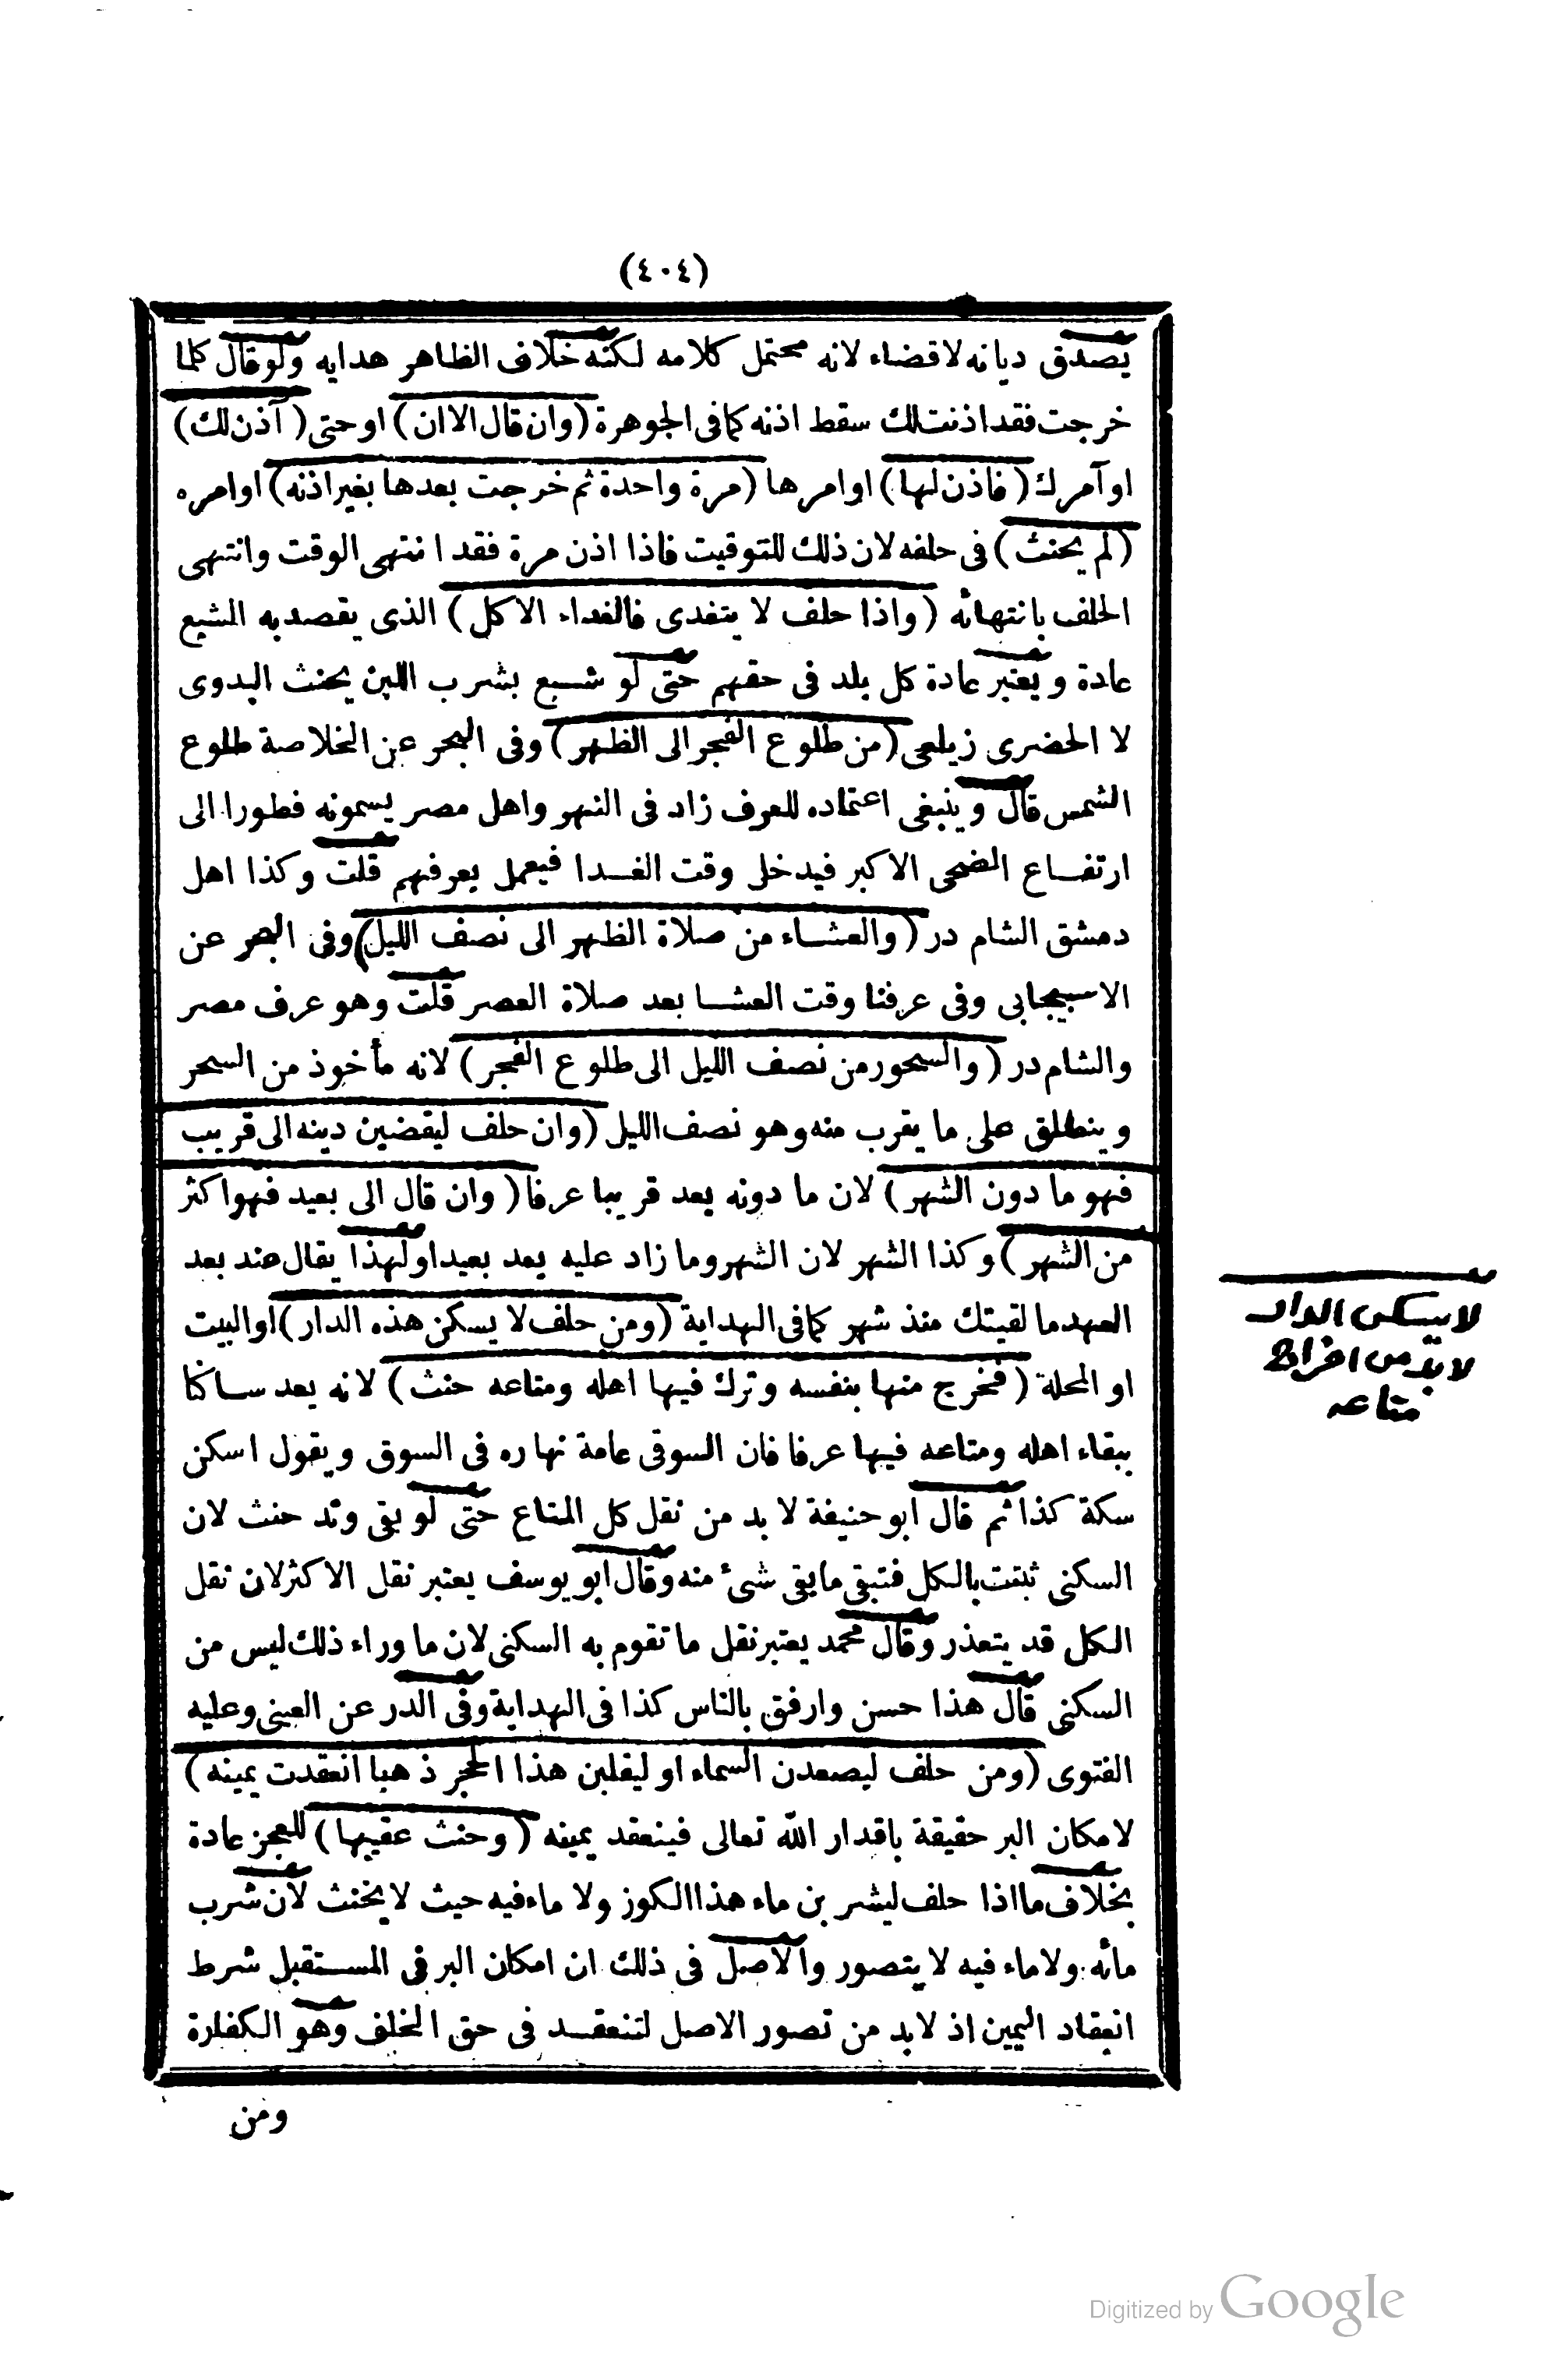 (٤٠٤)
يصدق ديانه لاقضاء لانه محتمل كلامه لكنه خلاف الظاهر هدايه ولوقال كلما
خرجت فقد اذنت لك سقط اذنه كما فى الجوهرة (وان قال الا ان) او حتى (آذن لك)
او آمرك (فاذن لها) او امرها (مرة واحدة ثم خرجت بعدها بغير اذنه) او امره
(لم يحنث) فى حلفه لان ذلك للتوقيت فاذا اذن مرة فقد انتهى الوقت وانتهى
الحلف بانتهائه (واذا حلف لا يتغدى فالغداء الاكل) الذى يقصد به الشبع
عادة ويعتبر عادة كل بلد فى حقهم حتى لو شبع بشرب اللبن يحنث البدوى
لا الحضرى زيلعى (من طلوع الفجر الى الظهر) وفى البحر عن الخلاصة طلوع
الشمس قال وينبغى اعتماده للعرف زاد فى النهر واهل مصر يسمونه فطورا الى
ارتفاع الضحى الاكبر فيدخل وقت الغدا فيعمل بعرفهم قلت وكذا اهل
دمشق الشام در (والعشاء من صلاة الظهر الى نصف الليل) وفى البحر عن
الاسبيجابى وفى عرفنا وقت العشا بعد صلاة العصر قلت وهو عرف مصر
والشام در (والسحور من نصف الليل الى طلوع الفجر) لانه مأخوذ من السحر
وينطلق على ما يقرب منه وهو نصف الليل (وان حلف ليقضين دينه الى قريب
فهو ما دون الشهر) لان ما دونه يعد قريبا عرفا (وان قال الى بعيد فهو اكثر
من الشهر) وكذا الشهر لان الشهر وما زاد عليه يعد بعيدا ولهذا يقال عند بعد
العهد ما لقيتك منذ شهر كما فى الهداية (ومن حلف لا يسكن هذه الدار) او البيت
او المحلة (فخرج منها بنفسه وترك فيها اهله ومتاعه حنث) لانه يعد ساكنا
ببقاء اهله ومتاعه فيها عرفا فان السوقى عامة نهاره فى السوق ويقول اسكن
سكة كذا ثم قال ابو حنيفة لا بد من نقل كل المتاع حتى لو بقى وتد حنث لان
السكنى ثبتت بالكل فتبقى ما بقى شئ منه وقال ابو يوسف يعتبر نقل الاكثر لان نقل
الكل قد يتعذر وقال محمد يعتبر نقل ما تقوم به السكنى لان ما وراء ذلك ليس من
السكنى قال هذا حسن وارفق بالناس كذا فى الهداية وفى الدر عن العينى وعليه
الفتوى (ومن حلف ليصعدن السماء او ليقلبن هذا الحجر ذهبا انعقدت يمينه)
لامكان البر حقيقة باقدار الله تعالى فينعقد يمينه (وحنث عقيبها) للعجز عادة
بخلاف ما اذا حلف ليشربن ماء هذا الكوز ولا ماء فيه حيث لا يحنث لان شرب
مائه ولا ماء فيه لا يتصور والاصل فى ذلك ان امكان البر فى المستقبل شرط
انعقاد اليمين اذ لا بد من تصور الاصل لتنعقد فى حق الخلف وهو الكفارة
ومن
لا يسكن الدار
لا بد من اخراج
متاعه
Digitized by Google